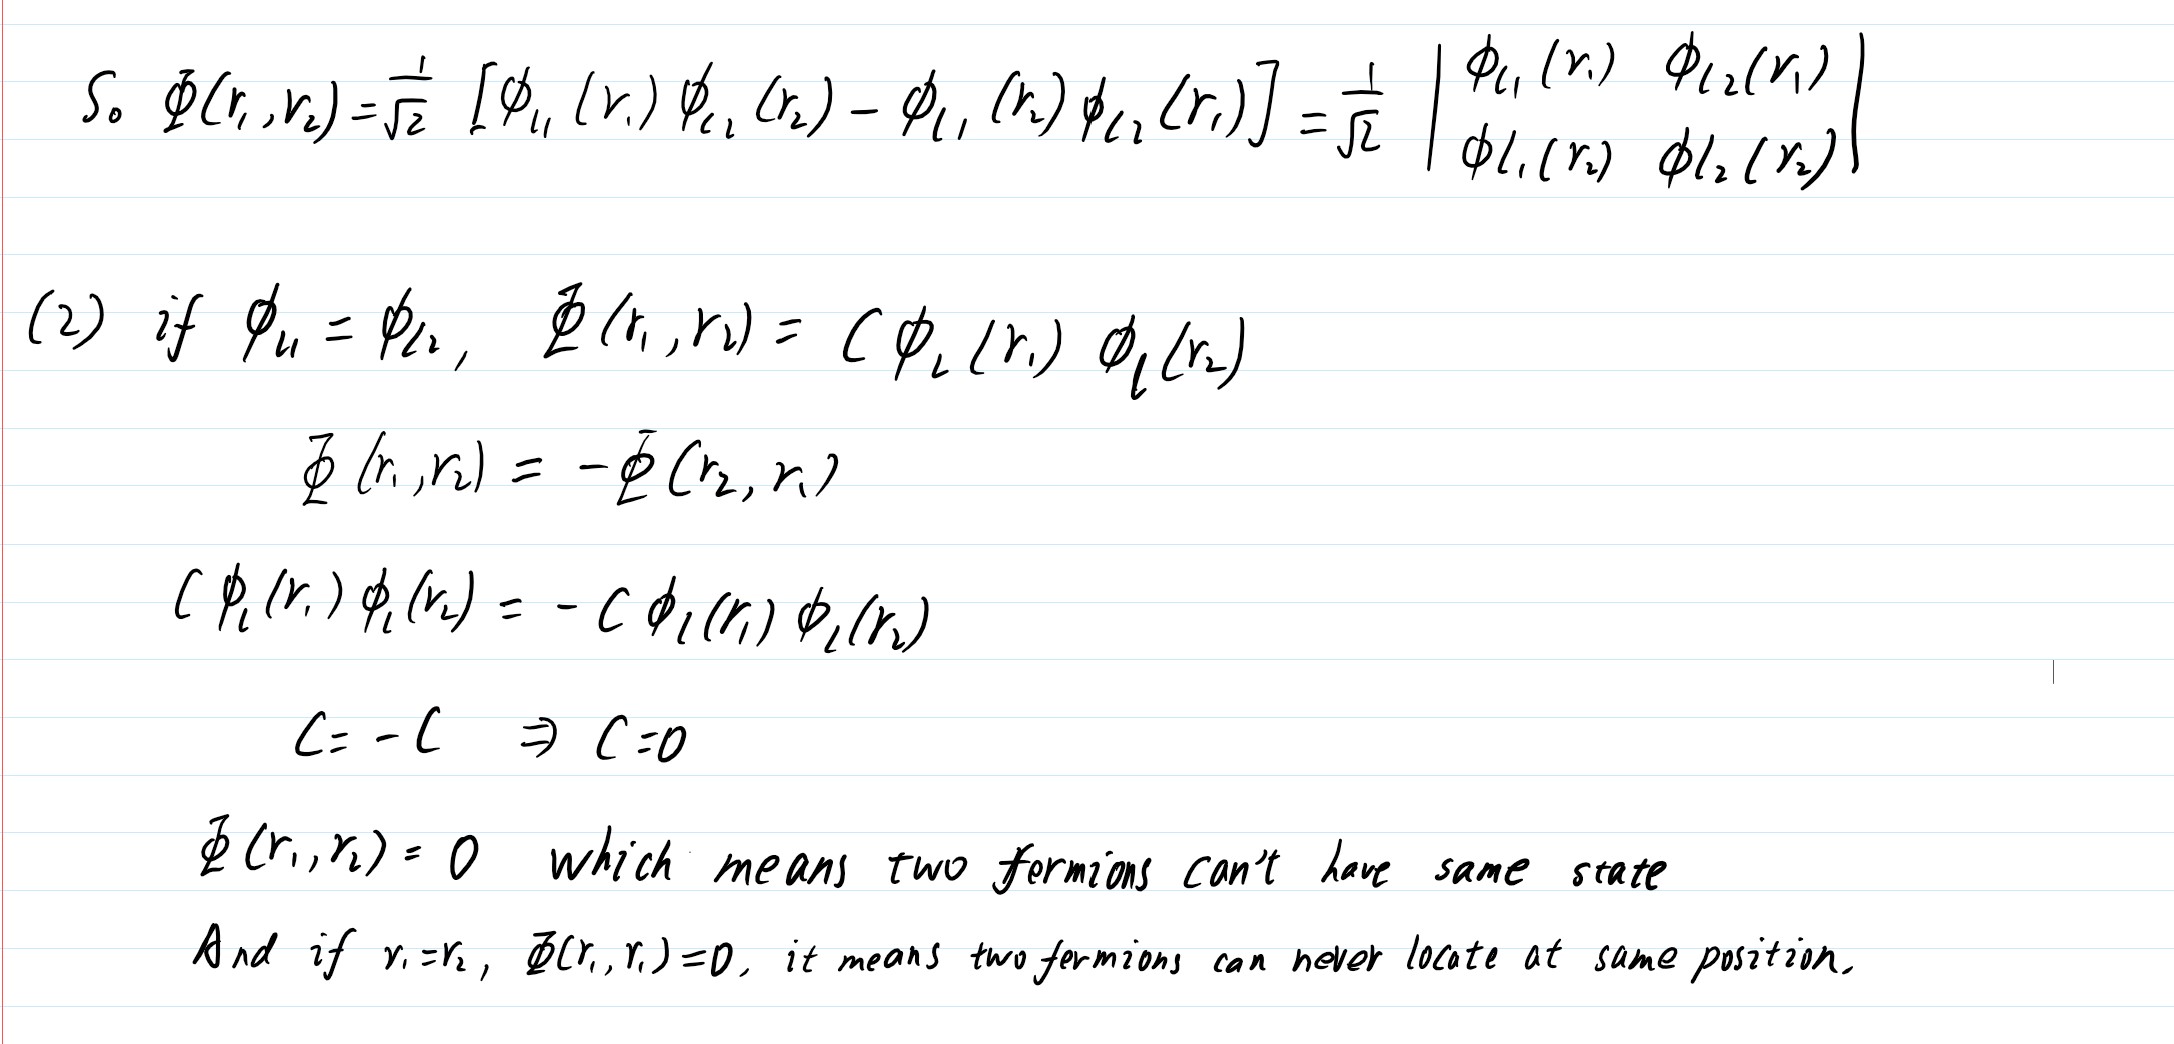 So Φ(r₁,r₂)=1/√2 [ϕl₁(r₁)ϕl₂(r₂)-ϕl₁(r₂)ϕl₂(r₁)]=1/√2 |ϕl₁(r₁) ϕl₂(r₁)|
|ϕl₁(r₂) ϕl₂(r₂)|
(2) if ϕl₁=ϕl₂, Φ(r₁,r₂)= Cϕl(r₁) ϕl(r₂)
Φ(r₁,r₂) = -Φ(r₂,r₁)
Cϕl(r₁)ϕl(r₂) = -Cϕl(r₁)ϕl(r₂)
C=-C ⇒ C=0
Φ(r₁,r₂)=0 which means two fermions can't have same state
And if r₁=r₂, Φ(r₁,r₁)=0, it means two fermions can never locate at same position.